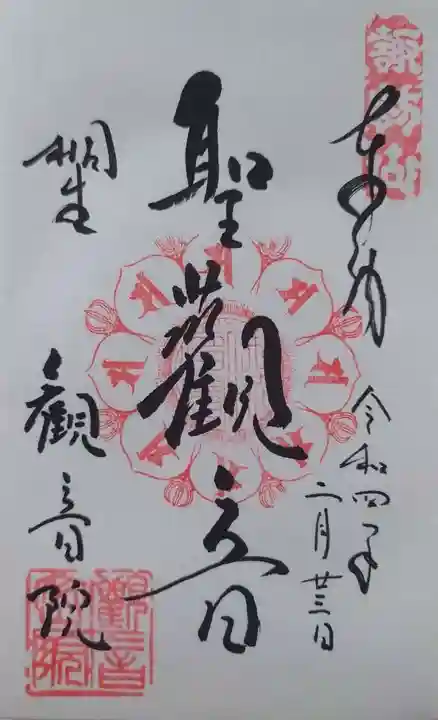 諏訪山
奉拝
令和四年
二月廿三日
聖観音
桐生
観音院
観音院